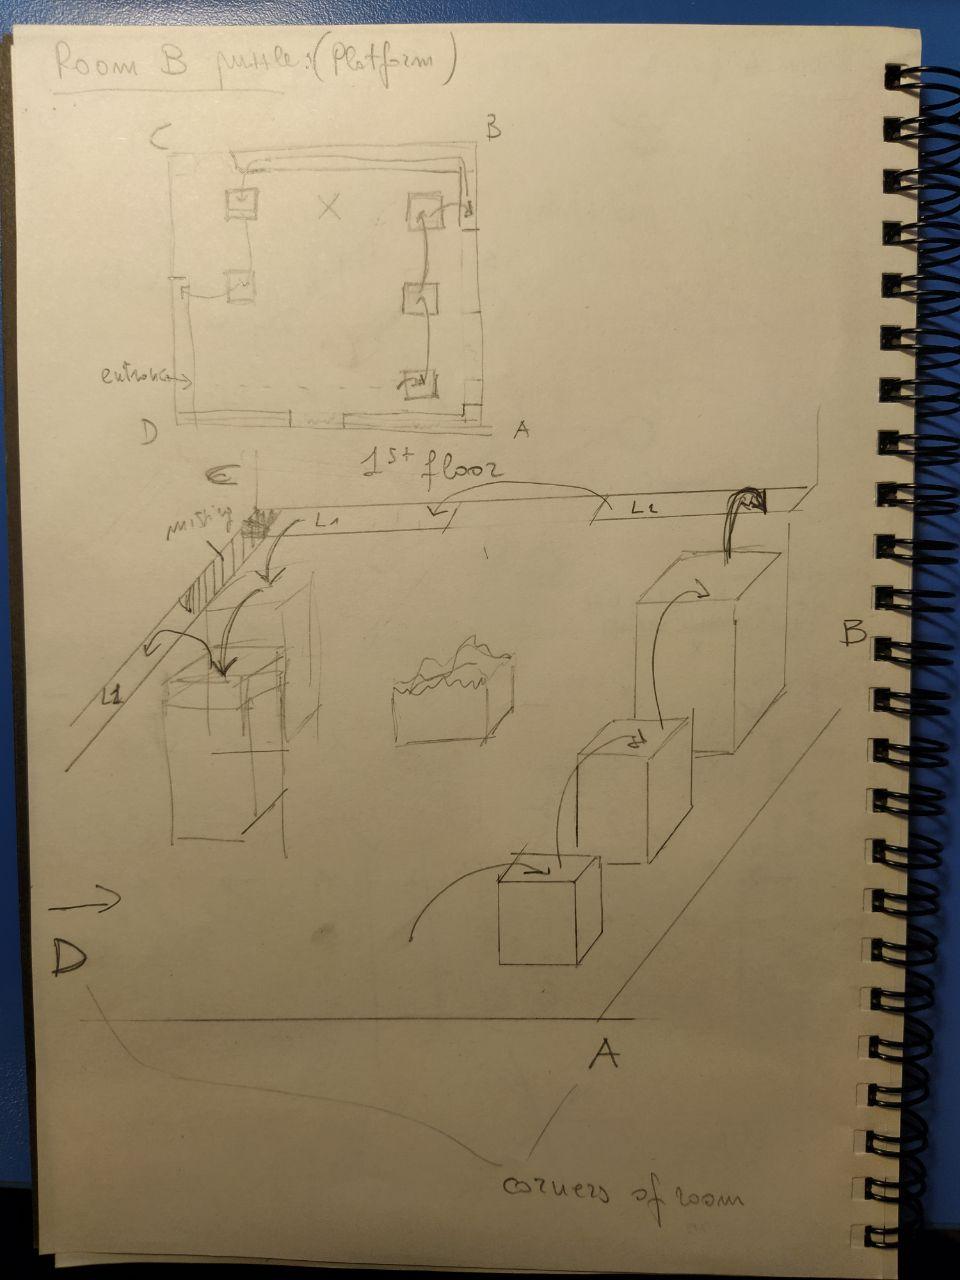 Room B puzzle: (Platform)
C
B
entrance
D
A
1st floor
C
missing
L1
L2
B
L1
D
A
corners of room